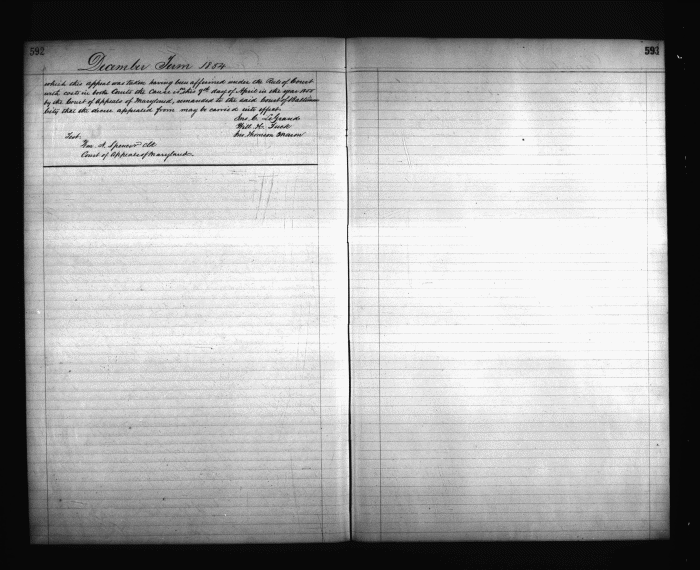 592
593
December Term 1854
which this appeal was taken having been affirmed under the Rule of Court
with costs in both Courts the Cause is this 9th day of April in the year 1855
by the Court of Appeals of Maryland, remanded to the said Court of Baltimore
City that the decree appealed from may be carried into effect.
Jno. C. LeGrand
Will. H. Tuck
Jno. Thomson Mason
Test.
Wm. A. Spencer Clk
Court of Appeals of Maryland.